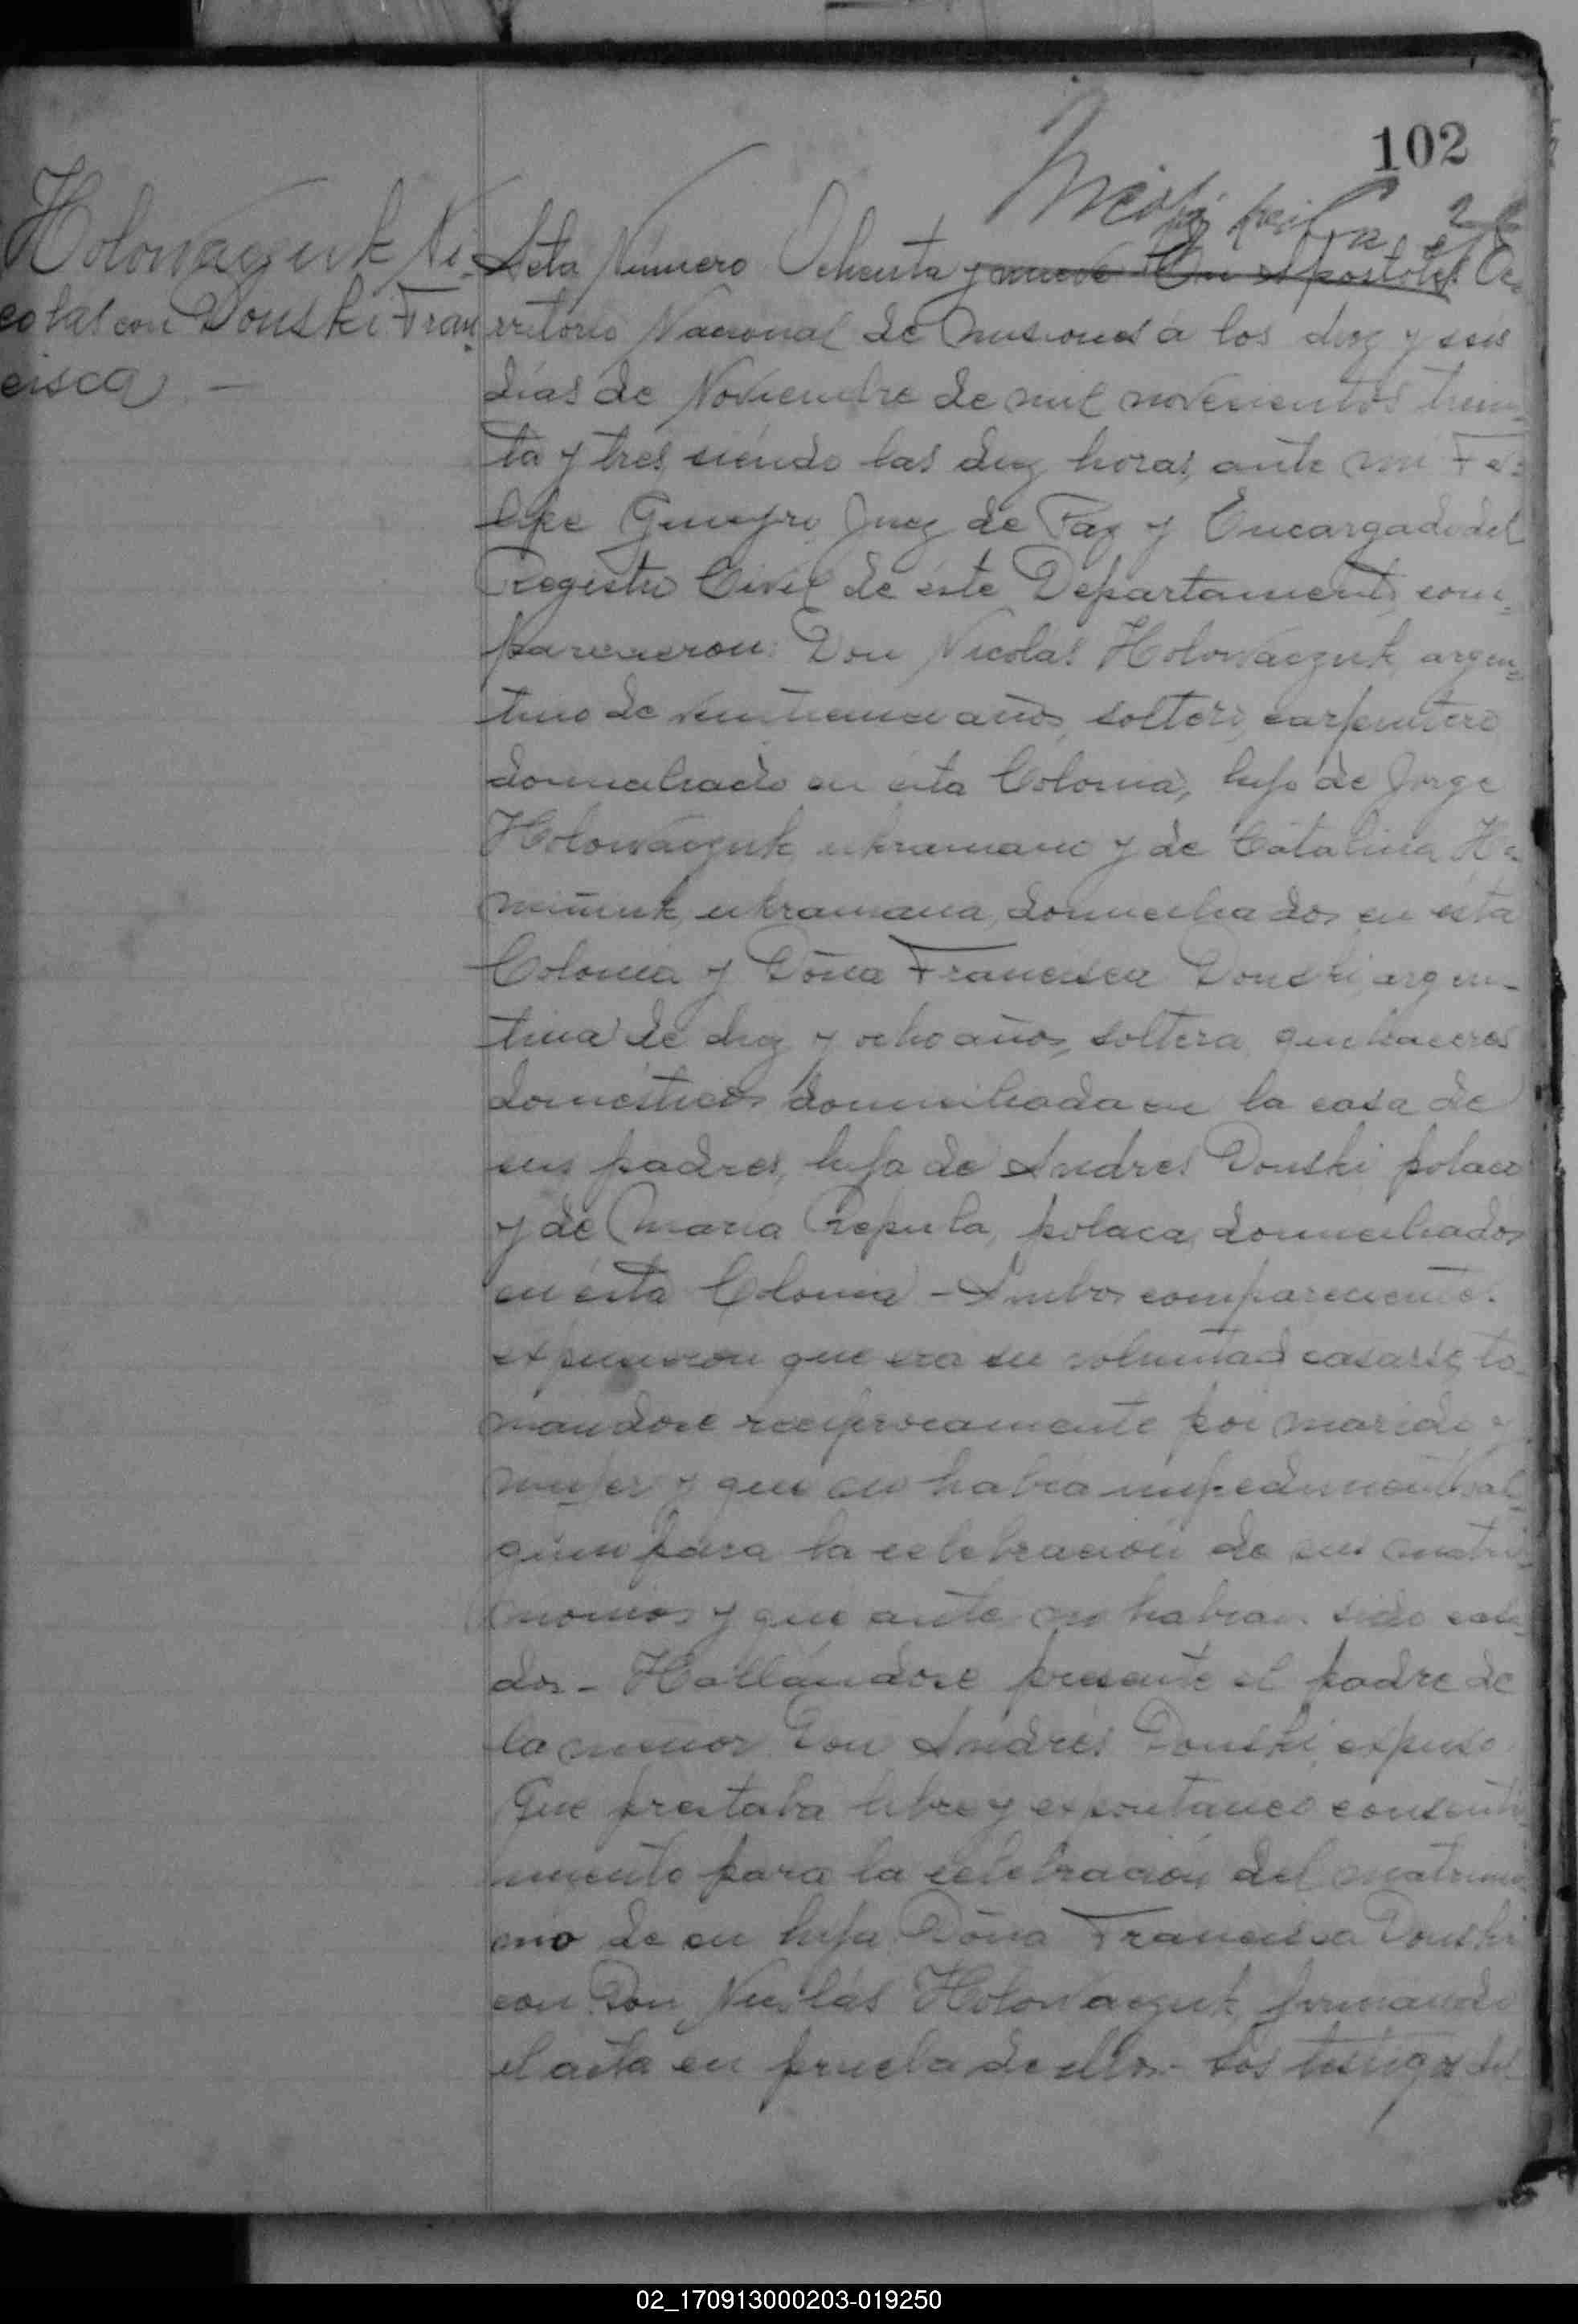 102
Holowaczuk Ni-
colas con Donski Fran
cisca. —
Acta Número Ochenta y nueve En Apostoles Te-
rritorio Nacional de Misiones á los diez y seis
días de Noviembre de mil novecientos trein-
ta y tres, siendo las diez horas, ante mi Fe-
lipe Juez de Paz y Encargado del
Registro Civil de éste Departamento, com-
parecieron: Don Nicolás Holowaczuk, argen-
tino de años, soltero, carpintero
domiciliado en ésta Colonia, hijo de Jorge
Holowaczuk, ukraniano y de Catalina
ukraniana, domiciliados en ésta
Colonia y Doña Francisca Donski, argen-
tina de diez y ocho años, soltera, quehaceres
domésticos domiciliada en la casa de
sus padres, hija de Andres Donski polaco
y de Maria Repula, polaca, domiciliados
en ésta Colonia - Ambos comparecientes
expusieron que era su voluntad casarse, to-
mandose reciprocamente por marido y
mujer y que no habia impedimento al-
guno para la celebración de sus matri-
monios y que ante no habian sido casa-
dos - Hallándose presente el padre de
la menor Don Andrés Donski, expuso
Que prestaba libre y espontaneo consenti-
miento para la celebración del matrimo-
nio de su hija Doña Francisca Donski
con Don Nicolás Holowaczuk, firmando
el acta en prueba de ello - Los testigos del
02_170913000203-019250